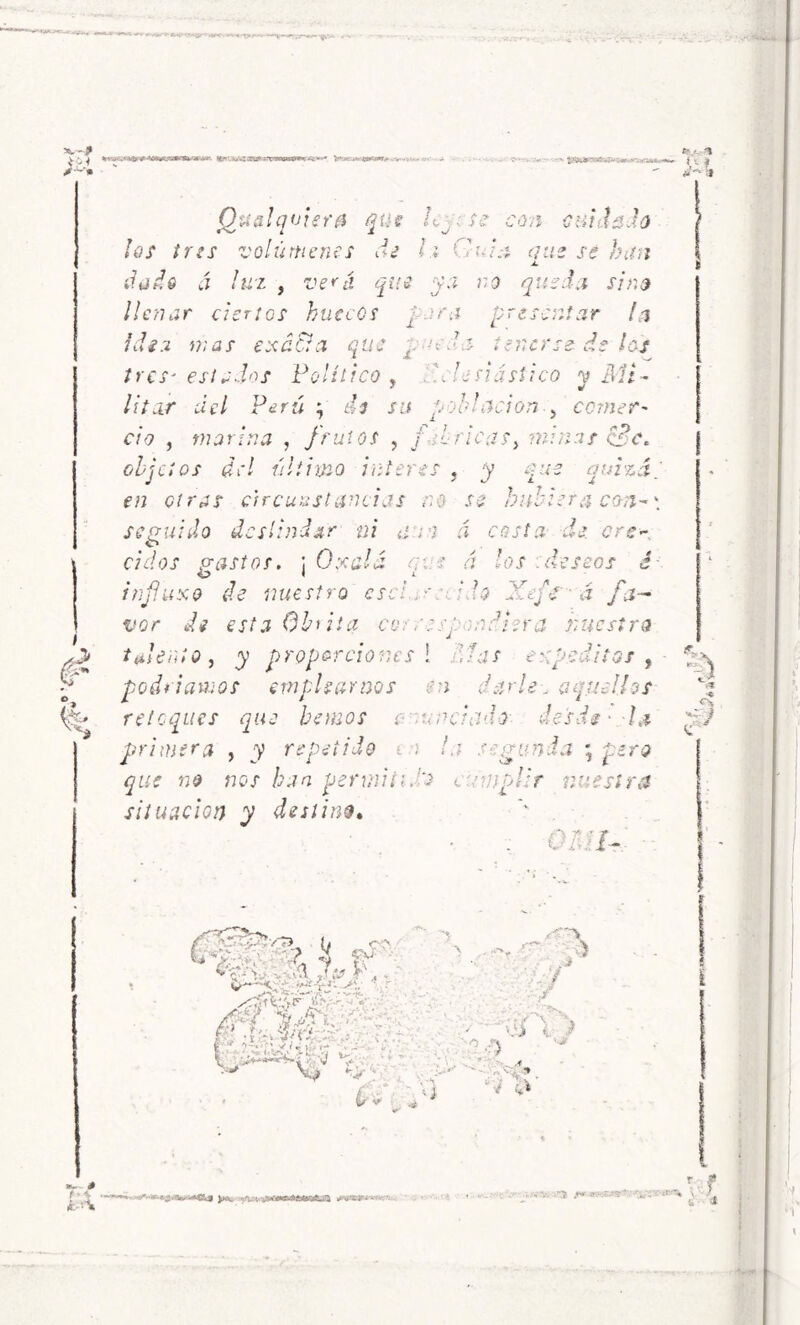 Qualquiera que leyese con cuidado
los tres volúmenes de la Guia que se han
dado á luz , verá que ya no queda sino
llenar ciertos huecos para presentar la
idea mas exâcta que pueda tenerse de los
tres estados Político , Eclesiástico y Mi-
litar del Perú ; de su poblacion , comer-
cio , marina , frutos , fábricas, minas &c.
objetos del último interes , y que quizá
en otras circunstancias no se hubiera con-
seguido deslindar ni aun á costa de cre-
cidos gastos. ¡ Oxalá que á los deseos é
influxo de nuestro esclarecido Xefe á fa-
vor de esta Obrita correspondiera nuestro
talento , y proporciones ! Mas expeditos ,
podriamos emplearnos en darle aquellos
retoques que hemos enunciado desde la
primera , y repetido en la segunda ; pero
que no nos han permitido cumplir nuestra
situacion y destino.
OMI-